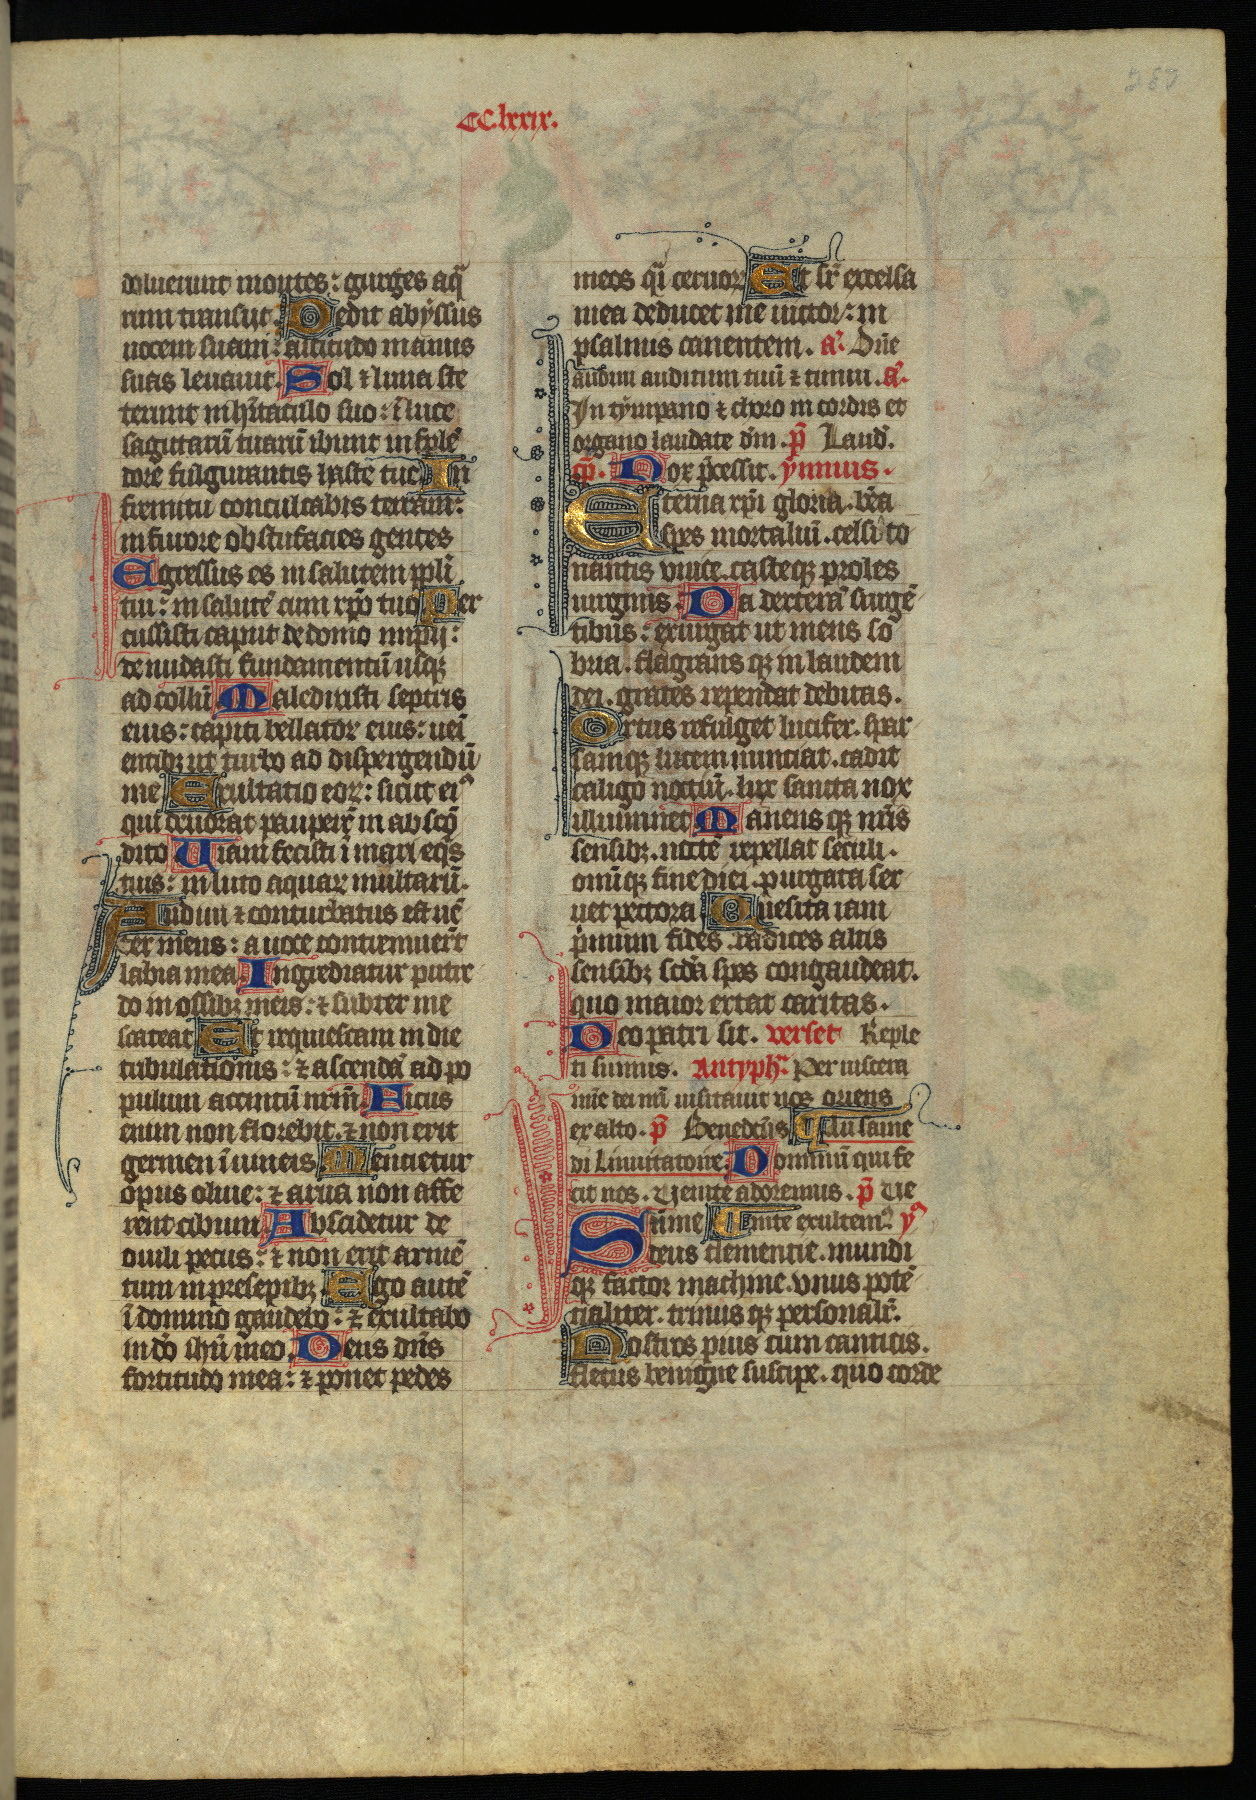 CC.lxxix.
doluerunt montes: gurges aq̄
rum transiit. Dedit abyssus
uocem suam: altitudo manus
suas leuauit. Sol ⁊ luna ste
terunt in hītaculo suo: ī luce
sagittarū tuarū ibunt in splē
dore fulgurantis haste tue In
fremitu conculcabis terram:
in furore obstufacies gentes
Egressus es in salutem ppli
tui: in salutē cum xp̄o tuo Per
cussisti caput de domo impij:
denudasti fundamentū usq̄
ad collū Maledixisti sceptris
eius: capiti bellator eius: ueī
entibꝫ ut turbo ad dispergendū
me Exultatio eoꝝ: sicut eiꝰ
qui deuorat pauperē in absco
dito Uiam fecisti ī mari eq̄s
tuis: in luto aquaꝝ multarū.
Audiui ⁊ conturbatus est uē
ter meus: a uoce contremuer̄t
labia mea. Ingrediatur putre
do in ossibꝫ meis: ⁊ subter me
scateat Et requiescam in die
tribulationis: ⁊ ascendā ad po
pulum accintū nr̄m. Ficus
enim non florebit. ⁊ non erit
germen ī uineis Mentietur
opus oliue: ⁊ arua non affe
rent cibum Abscidetur de
ouili pecus: ⁊ non erit armē
tum in presepibꝫ Ego autē
ī domino gaudebo: ⁊ exultabo
in dō ihū meo. Deus dn̄s
fortitudo mea: ⁊ ponet pedes
meos q̄i ceruoꝝ Et sr̄ excelsa
mea deducet me uictor: in
psalmis canentem. a. Dn̄e
audiui auditum tuū ⁊ timui. a.
In tympano ⁊ choro in cordis et
organo laudate dm̄. p̄ Laud.
cp̄. Nox p̄cessit. ymnus.
Eterna xp̄i gloria. bēa
spes mortaliū. celsi to
nantis unice. casteq̄ proles
uirginis. Da dexterā surgē
tibus: exurgat ut mens so
bria. flagrans qꝫ in laudem
dei. grates rependat debitas.
Ortus refulget lucifer. spar
samqꝫ lucem nunciat. cadit
caligo noctiū. lux sancta nox
illuminet Manens qꝫ nr̄is
sensibꝫ. noctē repellat seculi.
omīqꝫ fine diei. purgata ser
uet pectora Quesita iam
p̄mum fides. radices altis
sensibꝫ scd̄a spes congaudeat.
quo maior extat caritas.
Deo patri sit. verset Reple
ti sumus. Antyph. Per uiscera
mīe dei nr̄i uisitauit nos oriens
ex alto. p̄ Benedcīs
di Inuitatorie. Dominū qui fe
cit nos. Uenite adoremus. p̄ Ue
nite exultemꝰ yꝰ
Sūme deus clementie. mundi
qꝫ factor machine. vnus potē
tialiter. trinus qꝫ personalr̄.
Nostros pius cum canticis.
fletus benigne suscipe. quo corde